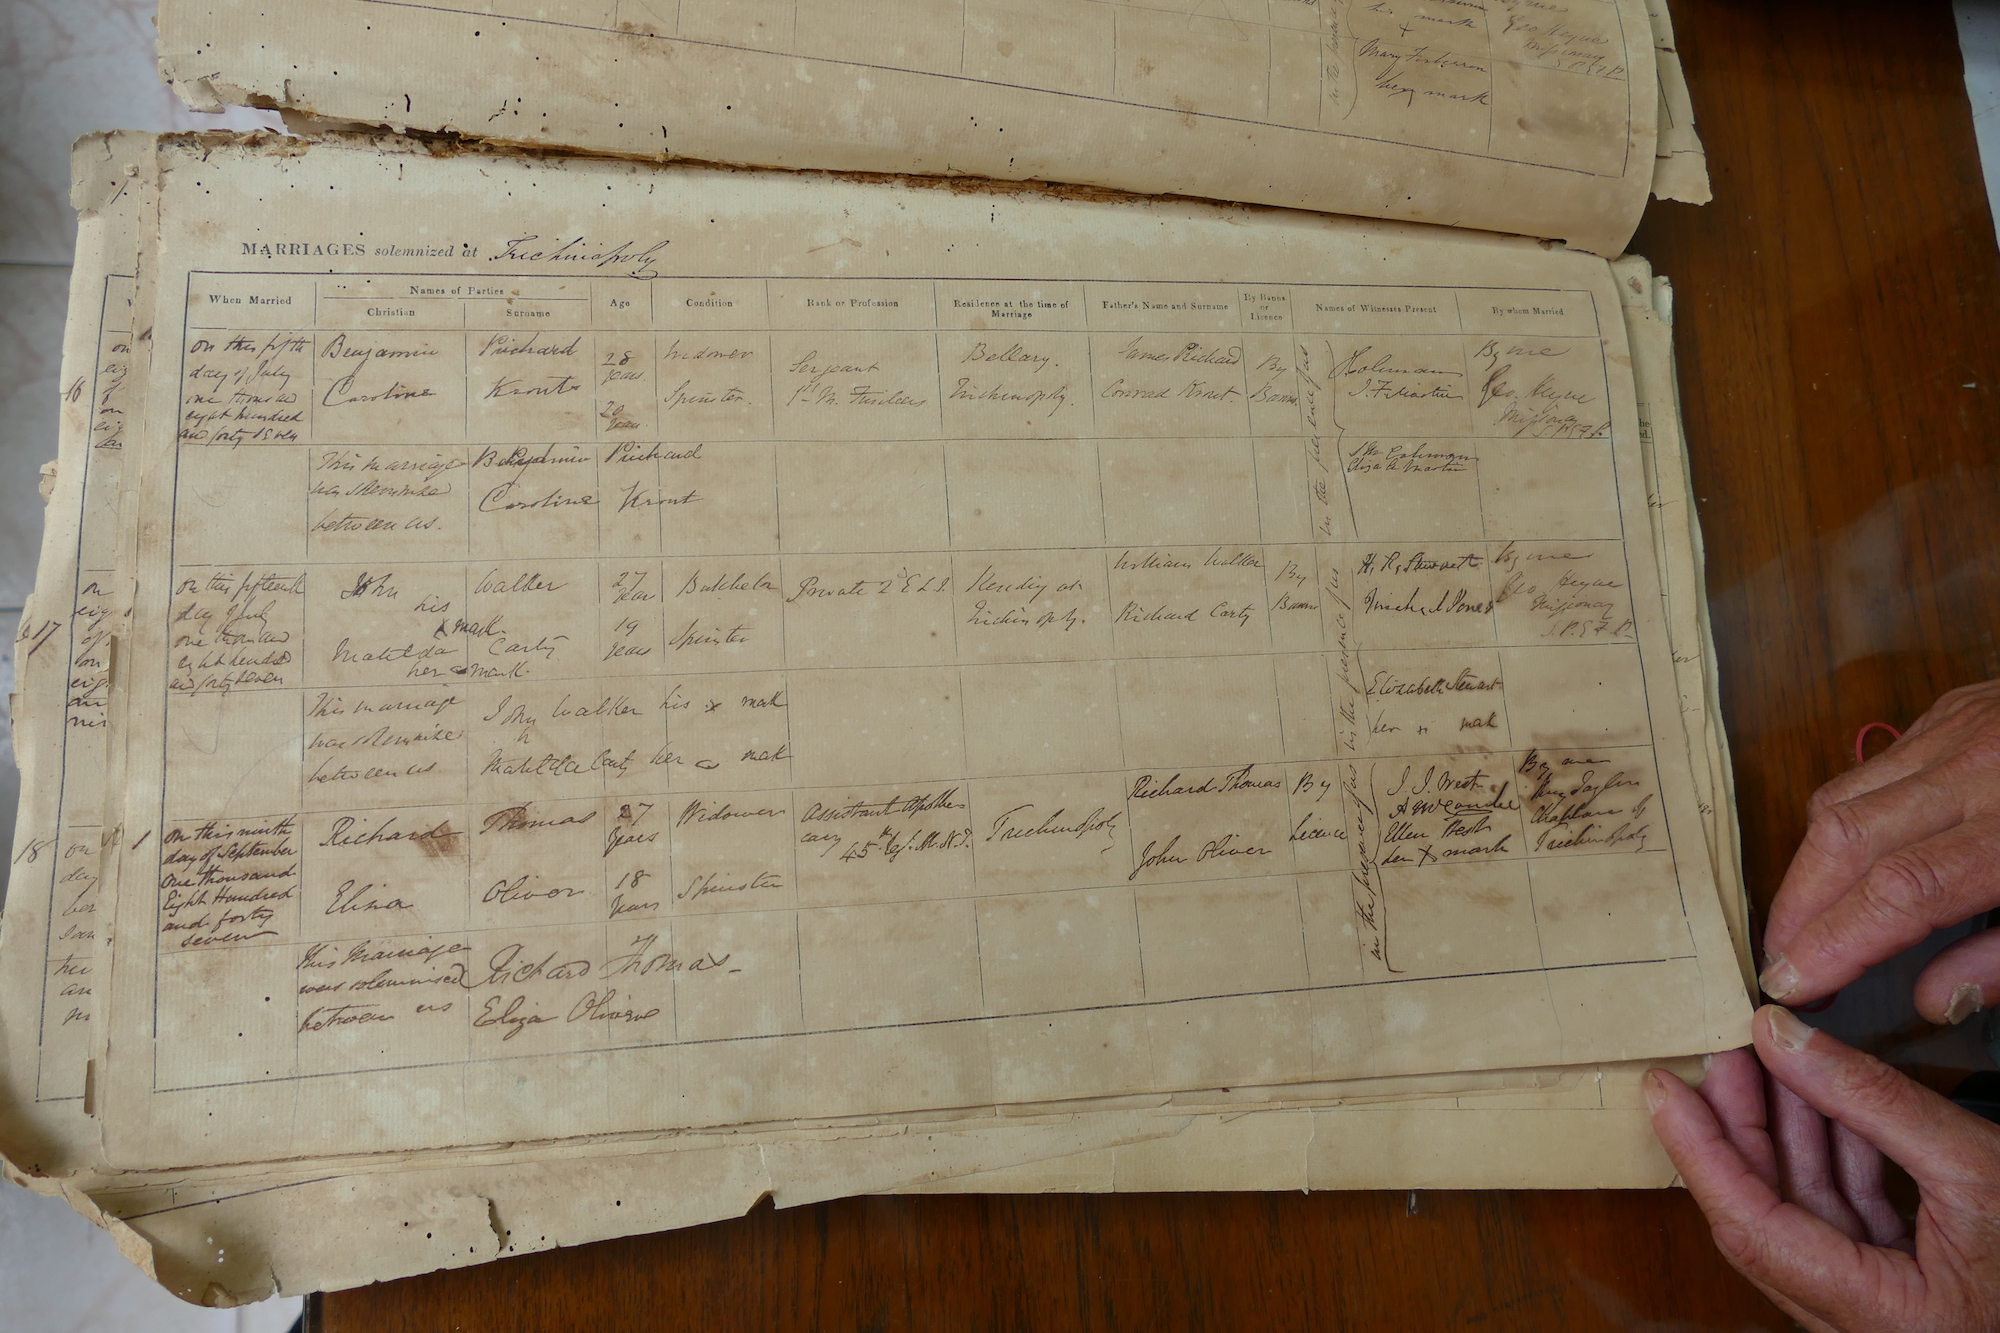 his mark
Mary
her mark
Geo Heyne
S.P.G.F.P.
MARRIAGES solemnized at Trichinopoly
When Married
Names of Parties
Christian
Surname
Age
Condition
Rank or Profession
Residence at the time of Marriage
Father's Name and Surname
By Banns or Licence
Names of Witnesses Present
By whom Married
16
on this fifth
day of July
one thousand
eight hundred
and forty seven
Benjamin Prichard 28 years
Caroline Kront 20 years
Widower
Spinster.
Sergeant
1st M. Fusileers
Bellary.
Trichinopoly.
James Prichard
Conrad Kront.
By
Banns
in the presence of us
Holeman
J. F. Martin
By me
Geo. Heyne
Missionary
S.P.G.F.P.
This marriage
was solemnized
between us.
Benjamin Prichard
Caroline Kront
Eliza A Martin
17
on this fifteenth
day of July
one thousand
eight hundred
and forty seven
John Walker 27 Years
his x mark.
Matilda Carty 19 years
her mark.
Batchelor
Spinster
Private 2d E L I.
Residing at
Trichinopoly.
William Walker
Richard Carty
By
Banns
in the presence of us
H. R. Stewart
Jones
By me
Geo Heyne
Missionary
S.P.G.F.P.
This marriage
was solemnized
between us
John Walker his x mark
Matilda Carty her mark
Elizabeth Stewart
her x mark
18
1
on this ninth
day of September
One thousand
Eight Hundred
and forty
seven
Richard Thomas 27 Years
Eliza Oliver 18 Years
Widower
Spinster
Assistant Apothe-
cary 45th Regt. M.N.I.
Trichinopoly
Richard Thomas
John Oliver
By
Licence
in the presence of us
J. J. West
Ellen West
her x mark
By me
Taylor
Chaplain of
Trichinopoly
This Marriage
was solemnised
between us
Richard Thomas
Eliza Oliver